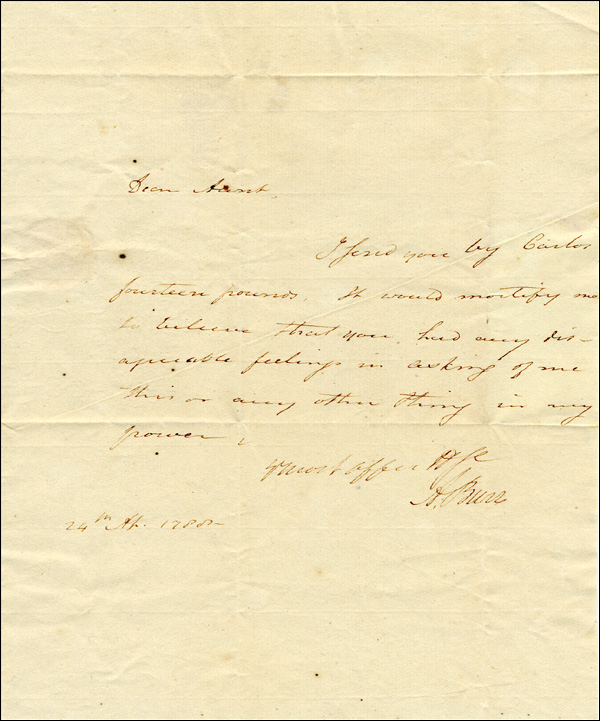 Dear Aunt
I send you by Carlos
fourteen pounds. It would mortify me
to believe that you, had any dis-
agreeable feelings in asking of me
this or any other thing in my
power
Yr most affec
A. Burr
24th Ap. 1788